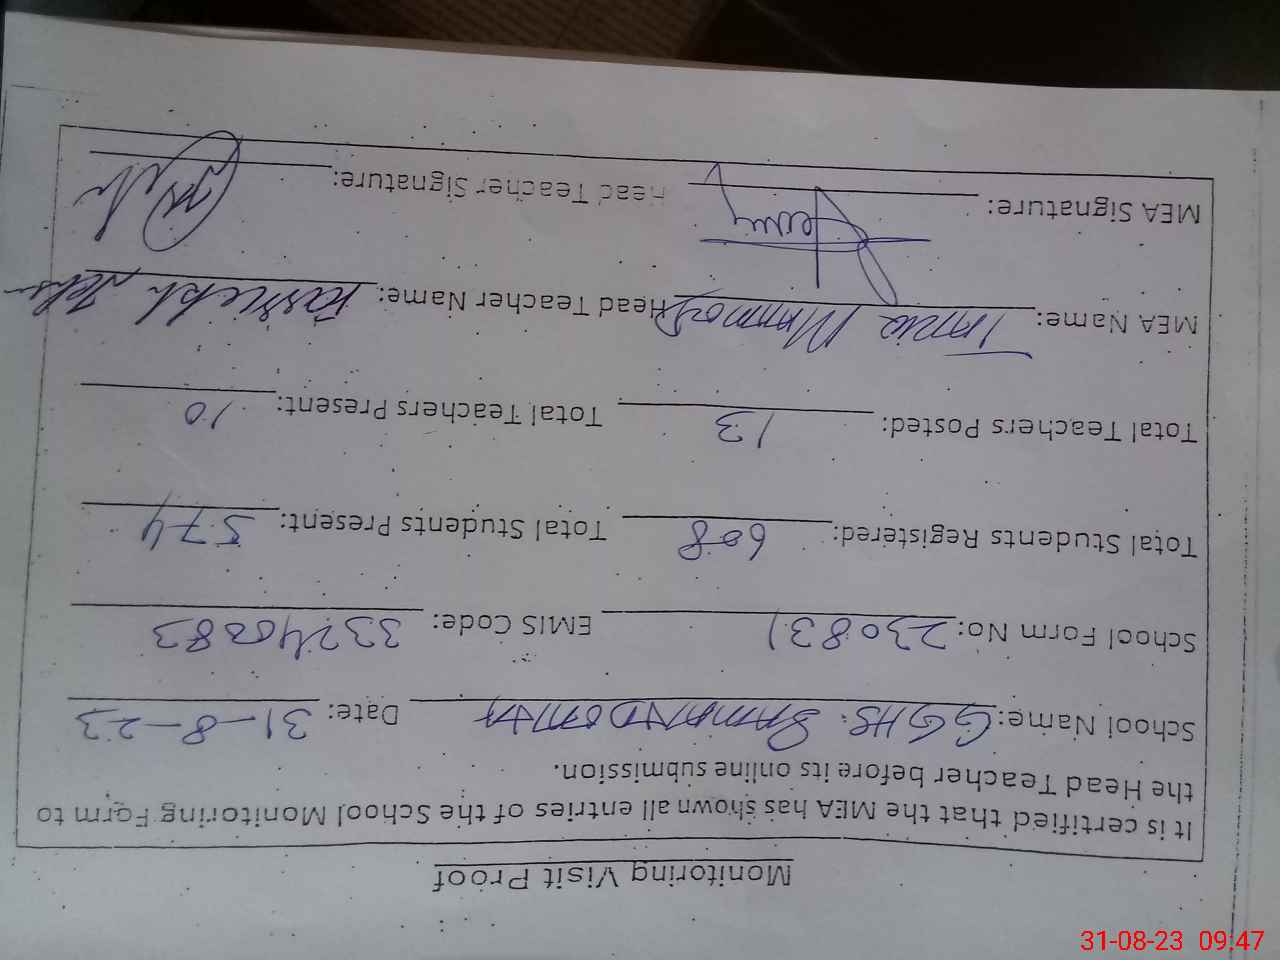 Monitoring Visit Proof
It is certified that the MEA has shown all entries of the School Monitoring Form to
the Head Teacher before its online submission.
School Name: GGHS. Date: 31-8-23
School Form No: 230831 EMIS Code: 33240083
Total Students Registered: 608 Total Students Present: 574
Total Teachers Posted: 13 Total Teachers Present: 10
MEA Name: Head Teacher Name:
MEA Signature: Head Teacher Signature:
31-08-23 09:47